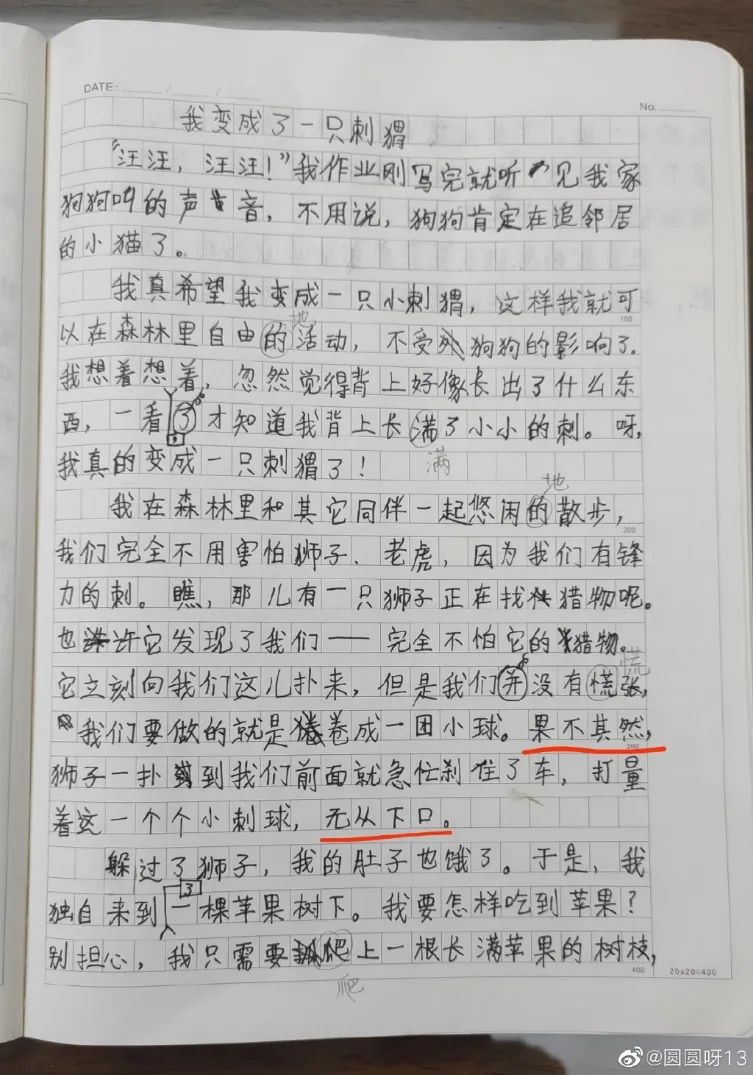 DATE: ___/___/___
No. ___
我变成了一只刺猬
"汪汪，汪汪！"我作业刚写完就听见我家
狗狗叫的声音，不用说，狗狗肯定在追邻居
的小猫了。
我真希望我变成一只小刺猬，这样我就可
100
地
以在森林里自由的活动，不受狗狗的影响了。
我想着想着，忽然觉得背上好像长出了什么东
西，一看了才知道我背上长满了小小的刺。呀，
我真的变成一只刺猬了！
满
地
我在森林里和其它同伴一起悠闲的散步，
200
我们完全不用害怕狮子、老虎，因为我们有锋
力的刺。瞧，那儿有一只狮子正在找猎物呢。
也许它发现了我们——完全不怕它的猎物。
慌
它立刻向我们这儿扑来，但是我们并没有慌张，
我们要做的就是卷成一团小球。果不其然，
300
狮子一扑到我们前面就急忙刹住了车，打量
着这一个个小刺球，无从下口。
躲过了狮子，我的肚子也饿了。于是，我
3
独自来到一棵苹果树下。我要怎样吃到苹果？
别担心，我只需要爬上一根长满苹果的树枝，
400
20x20=400
爬
@圆圆呀13